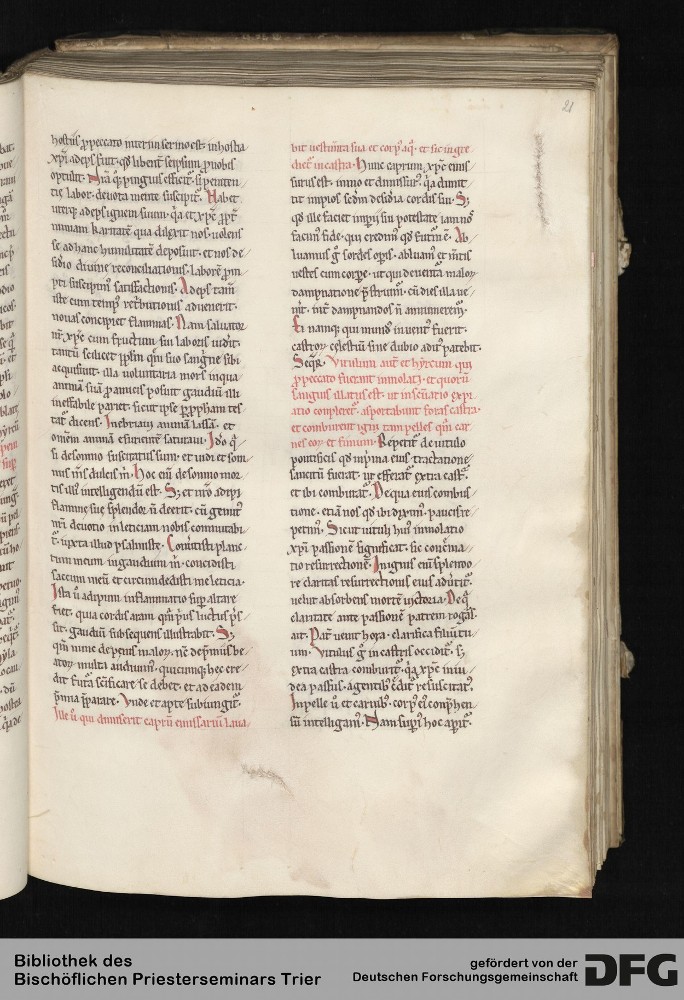 21
hostiis p peccato interim sermo est. in hostia
xpi adeps fuit. qd libent seipsum p nobis
optulit.
tie labor. devota mente suscipit. Habet
uterq adeps ignem suum. qa et xpc ppt
nimiam karitate qua dilexit nos. volens
se ad hanc humilitate deposuit. et nos de
sidio divine reconciliationis. labore
pti suscipim satisfactionis. Adeps tam
iste cum temp retributionis advenerit.
novas concipiet flammas. Nam salvator
nr xpc cum fructum sui laboris
tantu scilicet ipsim qm suo sangvine sibi
acquisivit. illa voluntaria mors in qua
anima sua p amicis posuit gaudiu illi
ineffabile pariet. sicut ipse p ppham tes
tat dicens. Inebriavi anima lassa. et
omem anima esuriente saturavi. Ido q
si de somno suscitatus sum. et vidi et som
nus ms dulcis m. Hoc eni de somno mor
tis illi intelligendu est. S; et nro adipi
flamme sue splendor n deerit. cu gemit
nri devotio in leticiam nobis commutabi
t. iuxta illud psalmiste. Convertisti planc
tum meum in gaudium m. concidisti
saccum meu et circumdedisti me leticia.
Ista u adipum inflammatio sup altare
fiet. quia cordis aram qm pus luctus ps
sit. gaudiu subsequens illustrabit. S;
qm nunc de penis malor. nc de pmiis be
ator. multa audivim. quicumq hec cre
dit futura se debet. et ad eadem
pmia pparare. Unde et apte subiungit.
Ille u qui dimiserit capru emissariu lava
bit vestimta sua et corp aq. et sic ingre
diet in castra. Hunc caprum xpc emis
surus est. immo et dimissur. qa dimit
tit impios secdm desidia cordis sui. S;
qd ille faciet impii sui potestate iam nos
facim fide. qui credim qd futm e. Ab
luamus g sordes opis. abluam et nris
vestes cum corpe. ut qui de venta malor
dampnatione pstrum. cu dies illa ve
nit. int dampnandos n annumerem.
Si namq qui mund invent fuerit.
castror celestiu sine dubio adit patebit.
Seqr. Vitulum aut et hyrcum qui
p peccato fuerant immolati. et quoru
sanguis illatus est. ut in scuario expi
atio complet. asportabunt foras castra.
et comburent igni tam pelles qm car
nes eor et fimum. Repetit de vitulo
pontificis qd in pma eius tractatione
sancitu fuerat. ut efferat extra cast.
et ibi comburat. De qua eius combus
tione. etia nos qd ibi dixim. paucis re
petim. Sicut vituli hui immolatio
xpi passione significat. sic concema
tio resurrectione. In ignis eni splendo
re claritas resurrectionis eius advtit.
velut absorbens morte in victoria. De q
claritate ante passione patrem rogas
ait. Pat venit hora. clarifica filiu tu
um. Vitulus g in castris occidit. s;
extra castra comburit. qa xpc in iu
dea passus. a gentib credit resuscitat.
In pelle u et carnib. corp ei conphen
su intelligam. Nam supi hoc apit.
Bibliothek des
Bischöflichen Priesterseminars Trier
gefördert von der
Deutschen Forschungsgemeinschaft
DFG